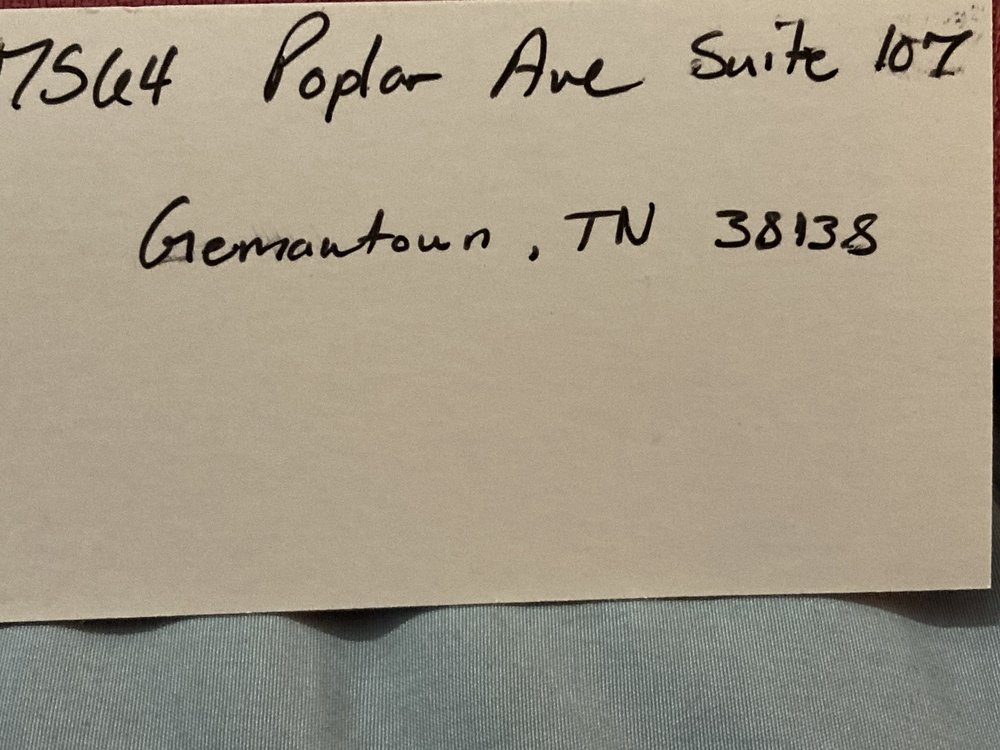 7564 Poplar Ave Suite 107
Germantown, TN 38138